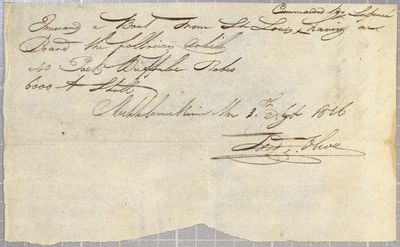 Commanded by
Inward a Boat From St Louis, having on
Board the following articles
40 Packs Buffaloe Robes
6000 lb
Michilimackinac 3th Sept 1816